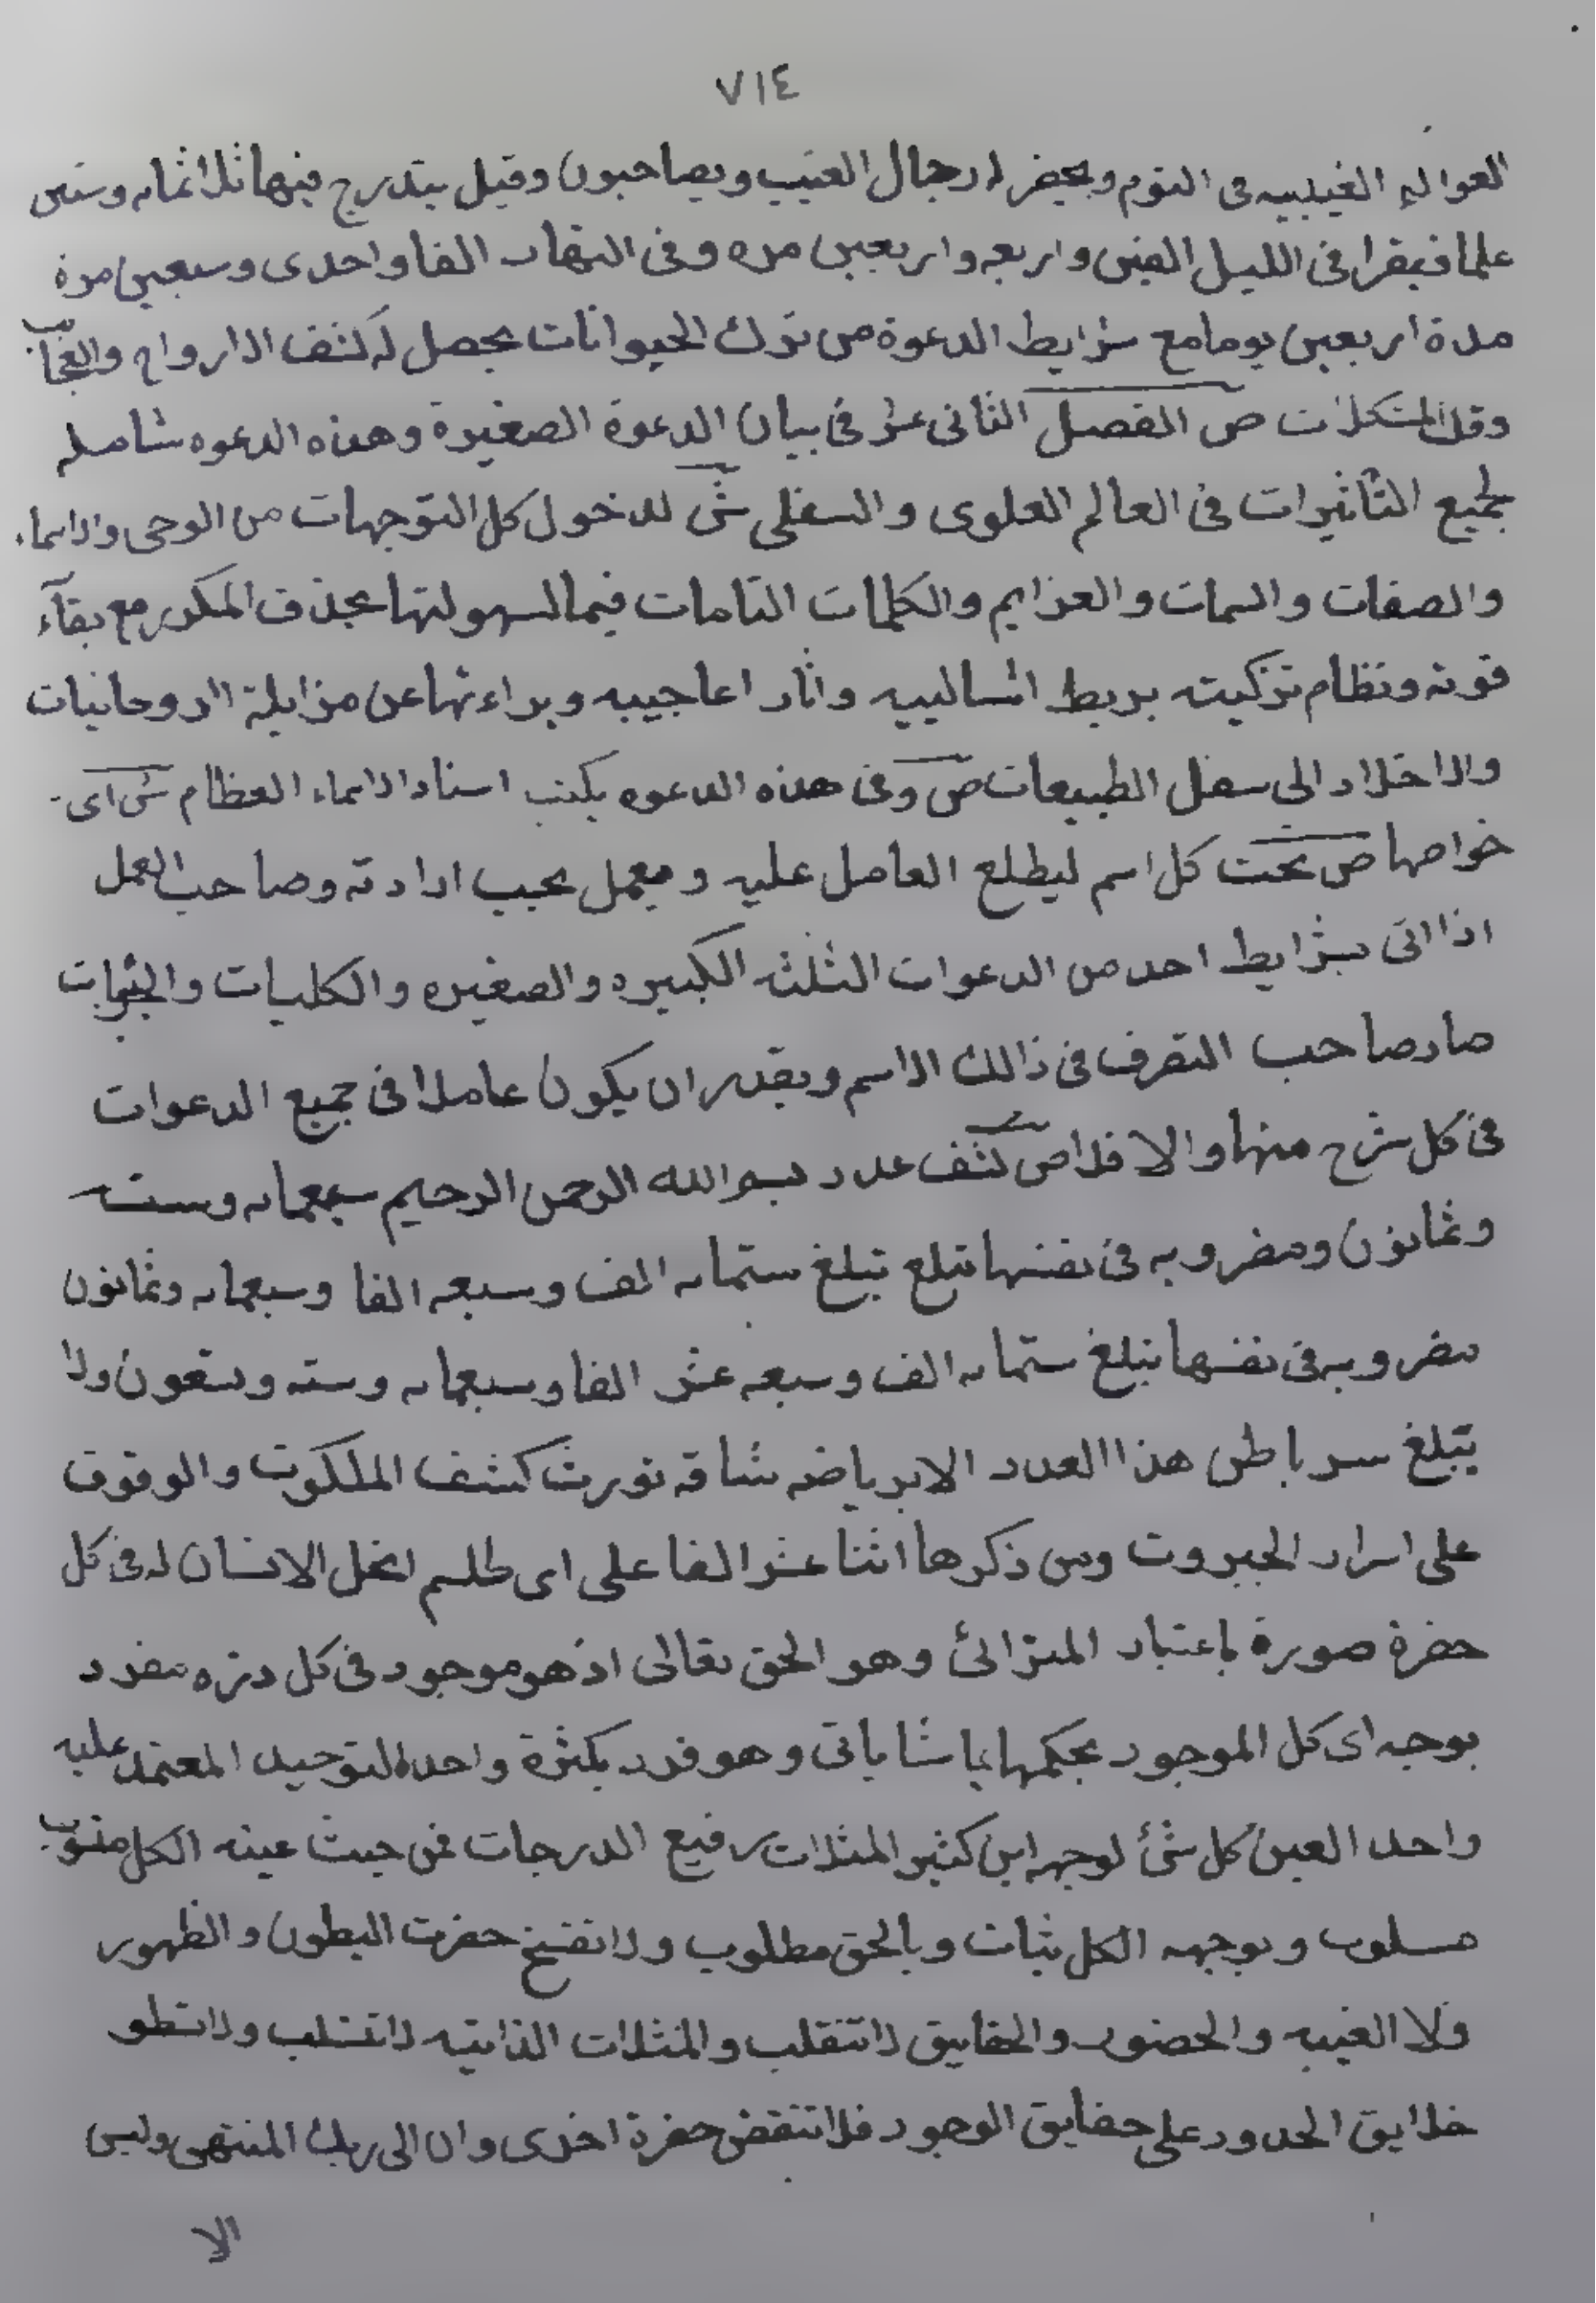 ٧١٤
العوالم الغيبيه فى النوم ويحضر له رجال الغيب ويصاحبون وقيل يتدرج فيها ثلاثمايه وستين
علما فيقرا فى الليل الفين واربعه واربعين مره وفى النهار الفا واحدى وسبعين مرة
مدة اربعين يوما مع شرايط الدعوة من ترك الحيوانات يحصل له كشف الارواح والعجايب
وفك المشكلات ص الفصل الثانى عشر فى بيان الدعوة الصغيرة وهذه الدعوه شامله
لجميع التاثيرات فى العالم العلوى والسفلى ش لدخول كل التوجهات من الوحى والاسماء
والصفات والسمات والعزايم والكلمات التامات فيها لسهولتها بحذف المكرر مع بقآء
قوته ونظام تركيته بربط اساليبه واثار اعاجيبه وبراءتها عن مزايلة الروحانيات
والاخلاد الى سفل الطبيعات ص وفى هذه الدعوه يكتب اسناد الاسماء العظام ش اى
خواصها ص تحت كل اسم ليطلع العامل عليه ويعمل بحسب ارادته وصاحب العمل
اذا اتى بشرايط احد من الدعوات الثلثه الكبيره والصغيره والكليات والجزئيات
صار صاحب التصرف فى ذالك الاسم ويقدر ان يكون عاملا فى جميع الدعوات
فى كل شرح منها والا فلا ص كشف عدد بسم الله الرحمن الرحيم سبعمايه وسته
وثمانون ومضروبه فى نفسها تبلغ تبلغ ستمايه الف وسبعه الفا وسبعمايه وثمانون
مضروبه فى نفسها تبلغ ستمايه الف وسبعه عشر الفا وسبعمايه وسته وتسعون ولا
يتبلغ سر باطن هذا العدد الا برياضه شاقه تورث كشف الملكوت والوقوف
على اسرار الجبروت ومن ذكرها اثنا عشر الفا على اى طلسم انحل الانسان له فى كل
حضرة صورة باعتبار المترائى وهو الحق تعالى اذ هو موجود فى كل ذره مفرد
بوجه اى كل الموجود بحكمها باشا ياتى وهو فرد بكثرة واحدة التوحيد المعتمد عليه
واحد العين كل شئ لوجهه اين كثير المثلات رفيع الدرجات فمن حيث عينه الكل منسوب
مسلوب وبوجهه الكل ثبات وبالحق مطلوب ولا تفسخ حضرت البطون والظهور
ولا الغيبه والحضور والحقايق لا تنقلب والمثلات الذاتيه لا تسلب ولا تطو
خلايق الحدود على حقايق الوجود فلا تنقض حضرة اخرى وان الى ربك المنتهى وليس
الا